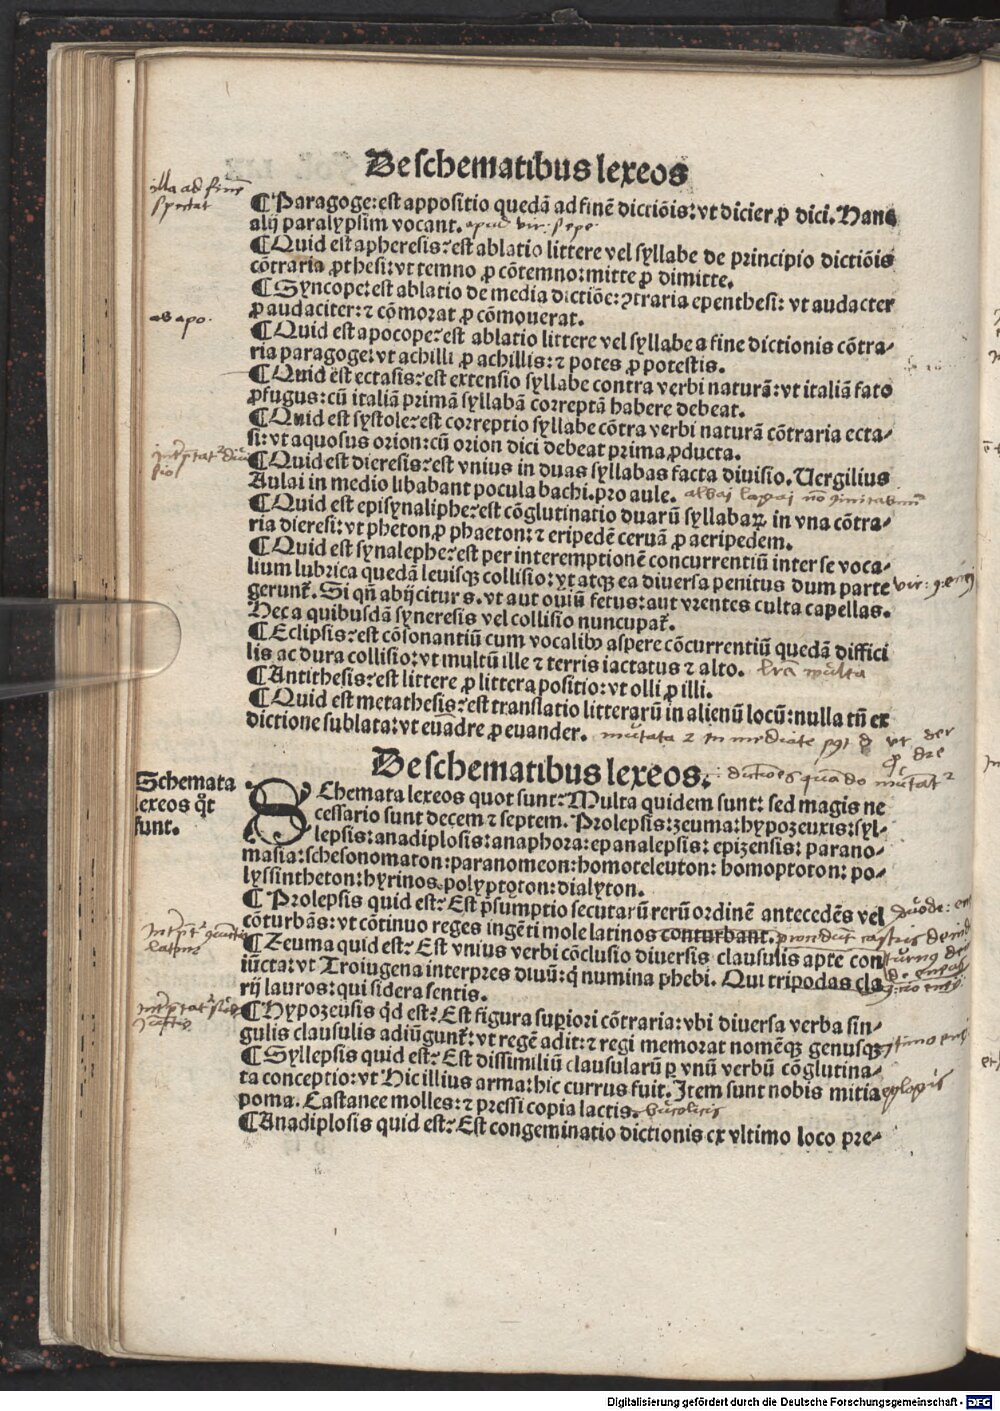 De schematibus lexeos
¶ Paragoge: est appositio quedā ad finē dictiōis: vt dicier ꝓ dici. Hanc
alij paralypsim vocant. apud vir: sepe
¶ Quid est apheresis: est ablatio littere vel syllabe de principio dictiōis
cōtraria ꝓthesi: vt temno ꝓ cōtemno: mitte ꝓ dimitte.
¶ Syncope: est ablatio de media dictiōe: ꝯtraria epenthesi: vt audacter
ꝓ audaciter: ⁊ cōmorat ꝓ cōmouerat.
ab apo.
¶ Quid est apocope: est ablatio littere vel syllabe a fine dictionis cōtra-
ria paragoge: vt achilli ꝓ achillis: ⁊ potes ꝓ potestis.
¶ Quid est ectasis: est extensio syllabe contra verbi naturā: vt italiā fato
ꝓfugus: cū italiā primā syllabā correptā habere debeat.
¶ Quid est systole: est correptio syllabe cōtra verbi naturā cōtraria ecta-
si: vt aquosus orion: cū orion dici debeat prima ꝓducta.
¶ Quid est dieresis: est vnius in duas syllabas facta diuisio. Uergilius
Aulai in medio libabant pocula bachi. pro aule.
¶ Quid est episynaliphe: est cōglutinatio duarū syllabaꝝ in vna cōtra-
ria dieresi: vt pheton ꝓ phaeton: ⁊ eripedē ceruā ꝓ aeripedem.
¶ Quid est synalephe: est per interemptionē concurrentiū inter se voca-
lium lubrica quedā leuisqꝫ collisio: vt atqꝫ ea diuersa penitus dum parte
gerunt̄. Si qn̄ abijcitur s. vt aut ouiū fetus: aut vrentes culta capellas.
Hec a quibusdā syneresis vel collisio nuncupat̄.
¶ Eclipsis: est cōsonantiū cum vocalibꝫ aspere cōcurrentiū quedā diffici
lis ac dura collisio: vt multū ille ⁊ terris iactatus ⁊ alto.
¶ Antithesis: est littere ꝓ littera positio: vt olli ꝓ illi.
¶ Quid est metathesis: est translatio litterarū in alienū locū: nulla tn̄ ex
dictione sublata: vt euādre ꝓ euander.
De schematibus lexeos.
Schemata
lexeos qͦt
sunt.
SChemata lexeos quot sunt: Multa quidem sunt: sed magis ne
cessario sunt decem ⁊ septem. Prolepsis: zeuma: hypozeuxis: syl-
lepsis: anadiplosis: anaphora: epanalepsis: epizensis: parano-
masia: schesonomaton: paranomeon: homoteleuton: homoptoton: po-
lyssintheton: hyrinos polyptoton: dialyton.
¶ Prolepsis quid est: Est p̄sumptio secutarū rerū ordinē antecedēs vel
cōturbās: vt cōtinuo reges ingēti mole latinos conturbant.
¶ Zeuma quid est: Est vnius verbi cōclusio diuersis clausulis apte con
iūcta: vt Troiugena interpres diuū: q̇ numina phebi. Qui tripodas cla
rij lauros: qui sidera sentis.
¶ Hypozeusis qͥd est: Est figura supiori cōtraria: vbi diuersa verba sin-
gulis clausulis adiūgunt̄: vt regē adit: ⁊ regi memorat nomēqꝫ genusqꝫ
¶ Syllepsis quid est: Est dissimiliū clausularū ꝑ vnū verbū cōglutina-
ta conceptio: vt Hic illius arma: hic currus fuit. Item sunt nobis mitia
poma. Castanee molles: ⁊ pressi copia lactis. bucolicis
¶ Anadiplosis quid est: Est congeminatio dictionis ex vltimo loco pre-
Digitalisierung gefördert durch die Deutsche Forschungsgemeinschaft - DFG